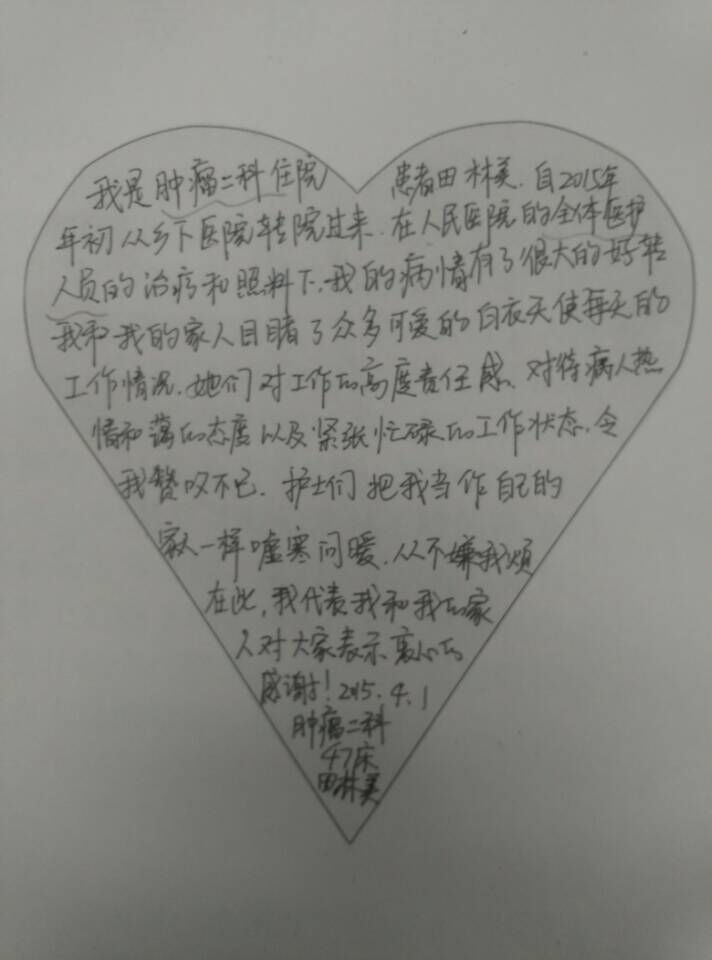 我是肿瘤二科住院 患者田林美.自2015年
年初从乡下医院转院过来.在人民医院的全体医护
人员的治疗和照料下.我的病情有了很大的好转
我和我的家人目睹了众多可爱的白衣天使每天的
工作情况.她们对工作的高度责任感、对待病人热
情和蔼的态度以及紧张忙碌的工作状态.令
我赞叹不已.护士们把我当作自己的
家人一样嘘寒问暖.从不嫌我烦
在此,我代表我和我的家
人对大家表示衷心的
感谢!2015.4.1
肿瘤二科
47床
田林美